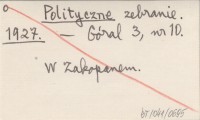 Polityczne zebranie.
1927. — Góral 3, nr 10.
W Zakopanem.
BJ/DKM/0685